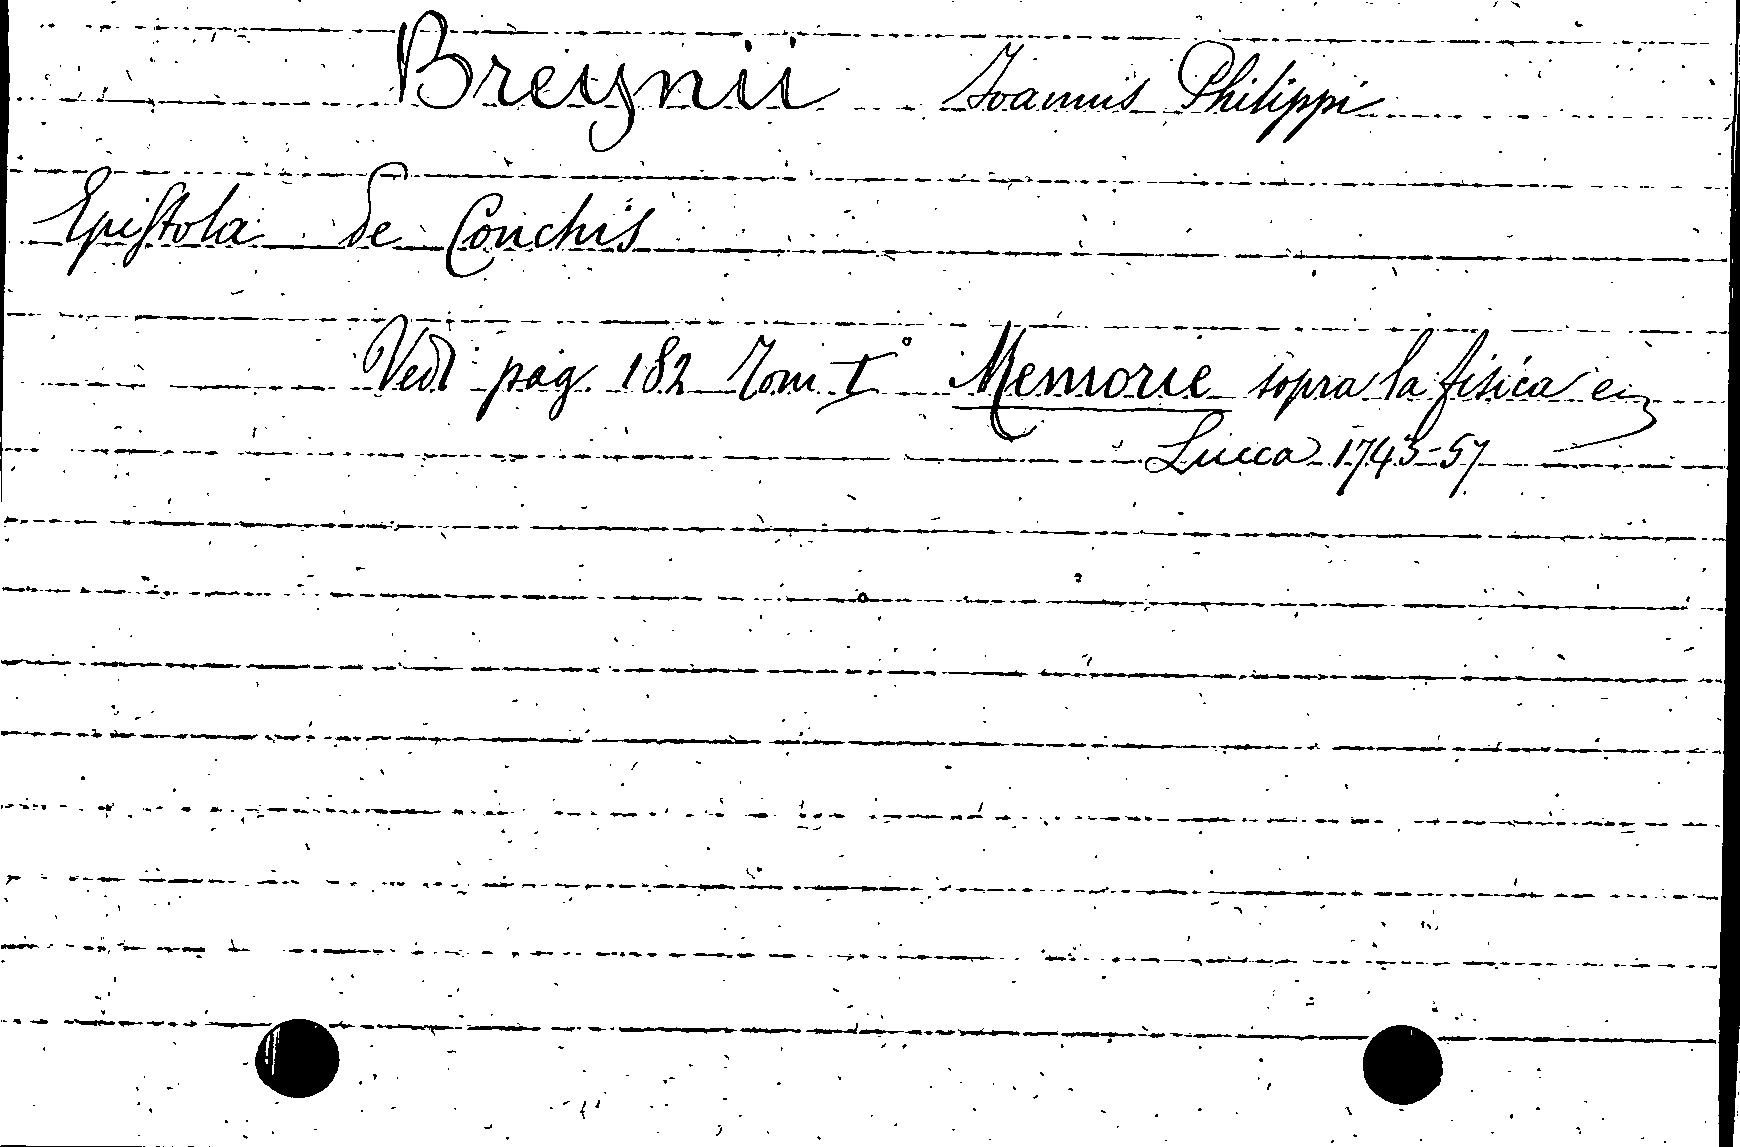 Breynii Ioannis Philippi
Epistola de Conchis
Vedi pag. 182 Tom I° Memorie sopra la fisica
Lucca 1743-57